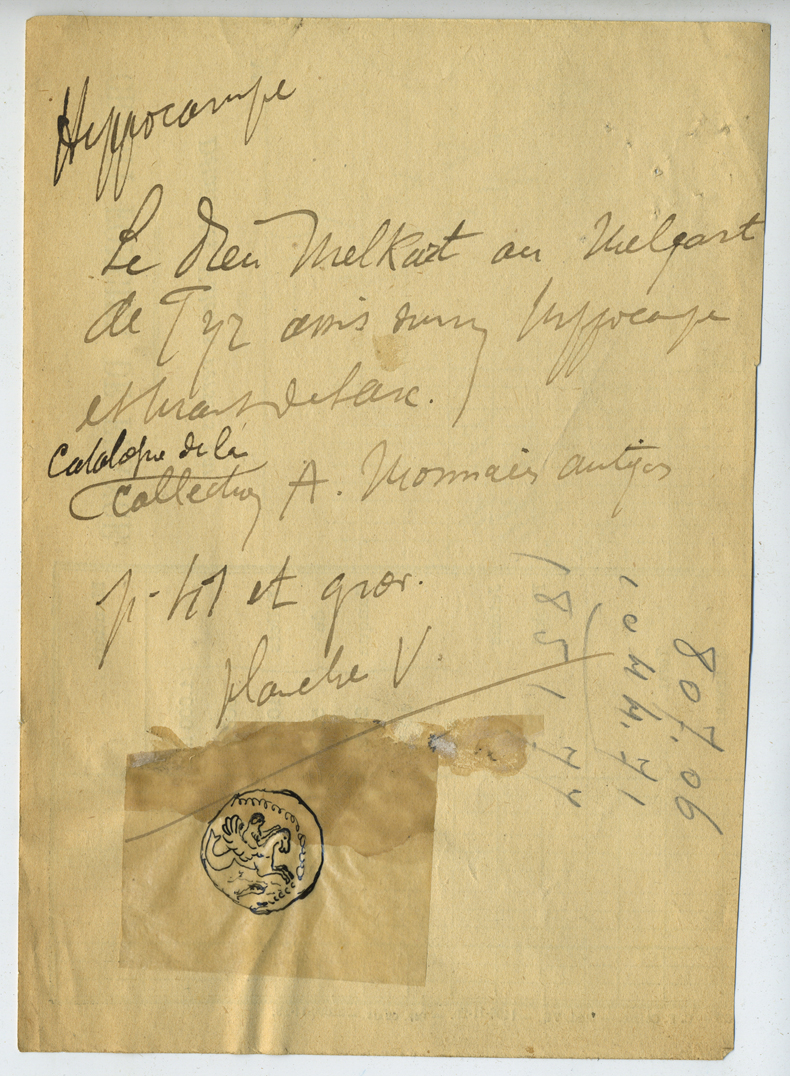 Hyppocampe
Le Dieu Melkart ou Melqart
de Tyr assis sur un hyppocampe
et tirant de l'arc.
Catalogue de la
Collection A. Monnaies antiques
p. et grav.
planche V.
1851.77
1044.71
807.06